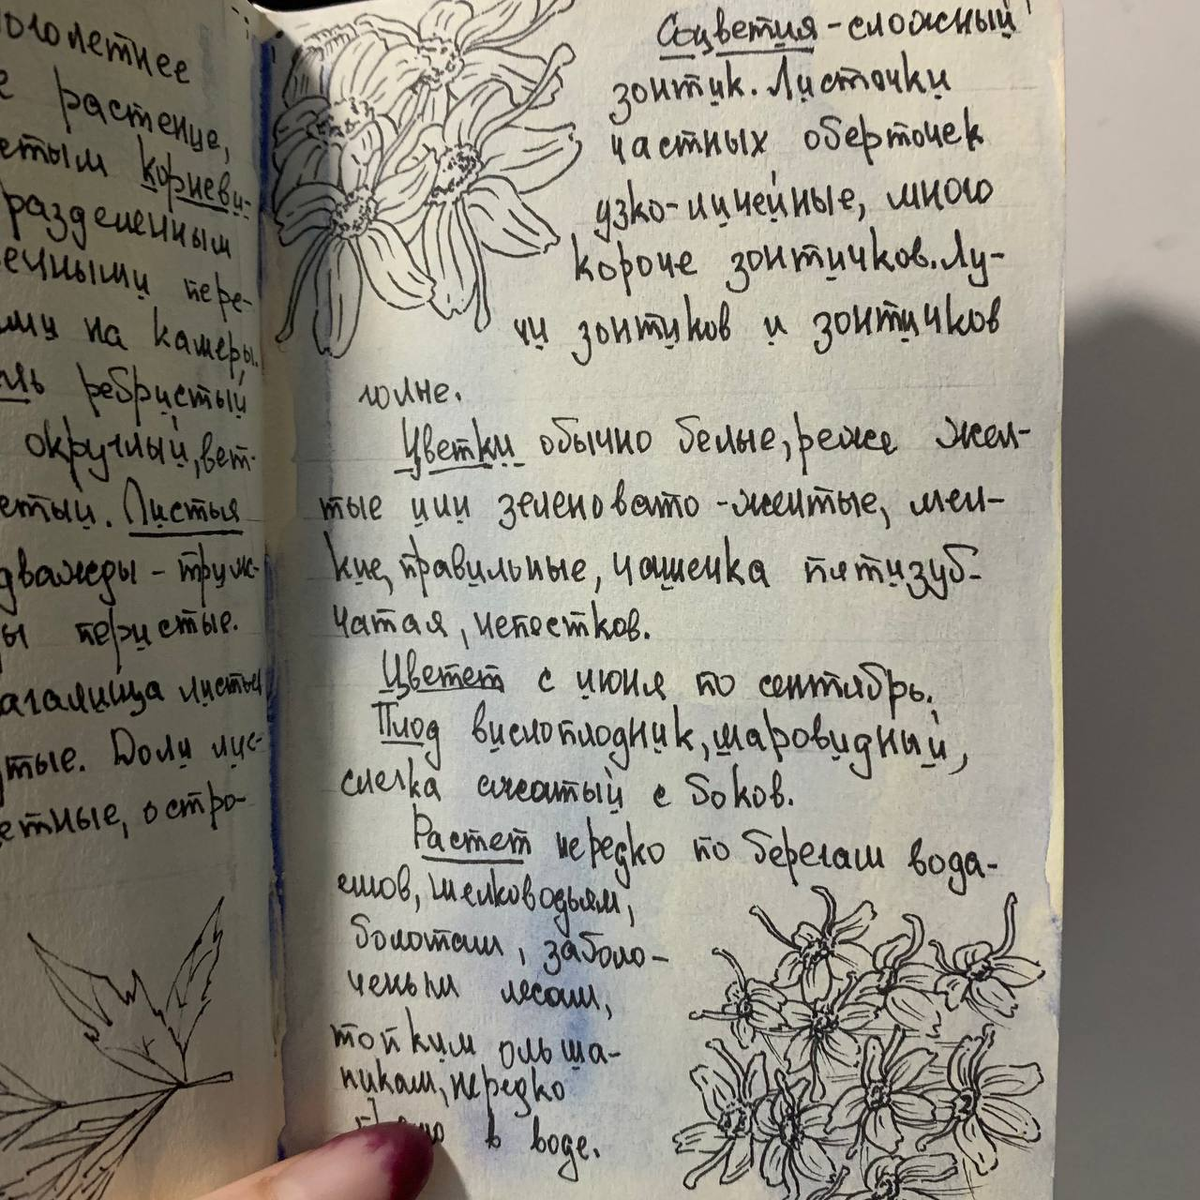 оголетнее
е растение,
етым корневи-
разделенным
ечными пере-
ми на камеры.
ль ребристый
округлый, вет-
етый. Листья
дважды - триж-
ы перистые.
агалища листьев
тые. Доли лис-
етные, остро-
Соцветия - сложный
зонтик. Листочки
частных оберточек
узко-линейные, много
короче зонтичков. Лу-
чи зонтиков и зонтичков
голые.
Цветки обычно белые, реже жел-
тые или зеленовато-желтые, мел-
кие, правильные, чашечка пятизуб-
чатая, лепестков.
Цветет с июня по сентябрь.
Плод вислоплодник, шаровидный,
слегка сжатый с боков.
Растет нередко по берегам вода-
емов, мелководьям,
болотам, заболо-
ченым лесам,
топким ольша-
никам, нередко
в воде.